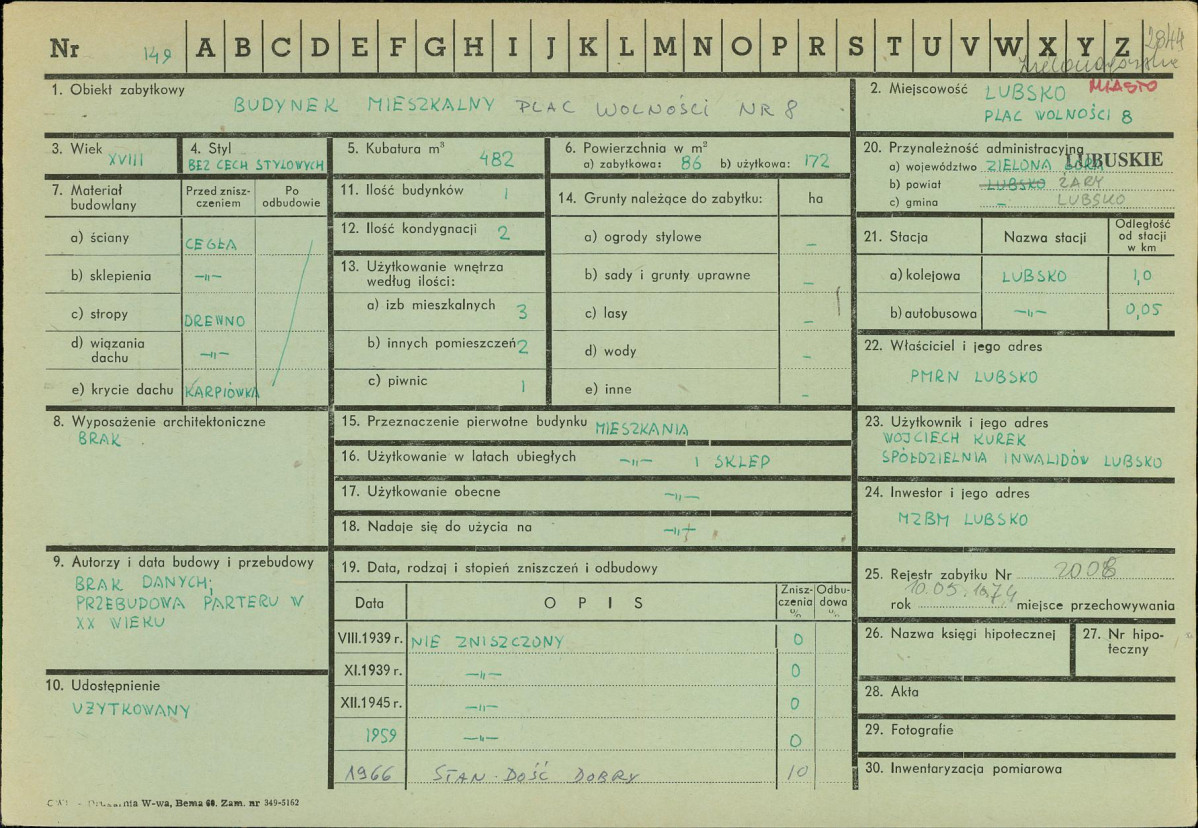 Nr 149 A B C D E F G H I J K L M N O P R S T U V W X Y Z 2844
1. Obiekt zabytkowy BUDYNEK MIESZKALNY PLAC WOLNOŚCI NR 8
2. Miejscowość LUBSKO MIASTO
PLAC WOLNOŚCI 8
3. Wiek XVIII
4. Styl
BEZ CECH STYLOWYCH
5. Kubatura m³ 482
6. Powierzchnia w m²
a) zabytkowa: 86 b) użytkowa: 172
20. Przynależność administracyjna
a) województwo ZIELONA GÓRA LUBUSKIE
b) powiat LUBSKO ŻARY
c) gmina – LUBSKO
7. Materiał budowlany
Przed znisz-
czeniem
Po
odbudowie
a) ściany CEGŁA
b) sklepienia –„–
c) stropy DREWNO
d) wiązania
dachu –„–
e) krycie dachu KARPIÓWKA
11. Ilość budynków 1
12. Ilość kondygnacji 2
13. Użytkowanie wnętrza
według ilości:
a) izb mieszkalnych 3
b) innych pomieszczeń 2
c) piwnic 1
14. Grunty należące do zabytku: ha
a) ogrody stylowe –
b) sady i grunty uprawne –
c) lasy –
d) wody –
e) inne –
21. Stacja Nazwa stacji
Odległość
od stacji
w km
a) kolejowa LUBSKO 1,0
b) autobusowa –„– 0,05
22. Właściciel i jego adres
PMRN LUBSKO
8. Wyposażenie architektoniczne
BRAK
15. Przeznaczenie pierwotne budynku MIESZKANIA
16. Użytkowanie w latach ubiegłych –„– I SKLEP
17. Użytkowanie obecne –„–
18. Nadaje się do użycia na –„–
23. Użytkownik i jego adres
WOJCIECH KUREK
SPÓŁDZIELNIA INWALIDÓW LUBSKO
24. Inwestor i jego adres
MZBM LUBSKO
9. Autorzy i data budowy i przebudowy
BRAK DANYCH;
PRZEBUDOWA PARTERU W
XX WIEKU
19. Data, rodzaj i stopień zniszczeń i odbudowy
Data OPIS
Znisz-
czenia
%
Odbu-
dowa
%
VIII.1939 r. NIE ZNISZCZONY 0
XI.1939 r. –„– 0
XII.1945 r. –„– 0
1959 –„– 0
1966 STAN DOŚĆ DOBRY 10
25. Rejestr zabytku Nr 2008
rok 10.05.1974 miejsce przechowywania
26. Nazwa księgi hipotecznej
27. Nr hipo-
teczny
10. Udostępnienie
UŻYTKOWANY
28. Akta
29. Fotografie
30. Inwentaryzacja pomiarowa
W-wa, Bema 60. Zam. nr 349-5162